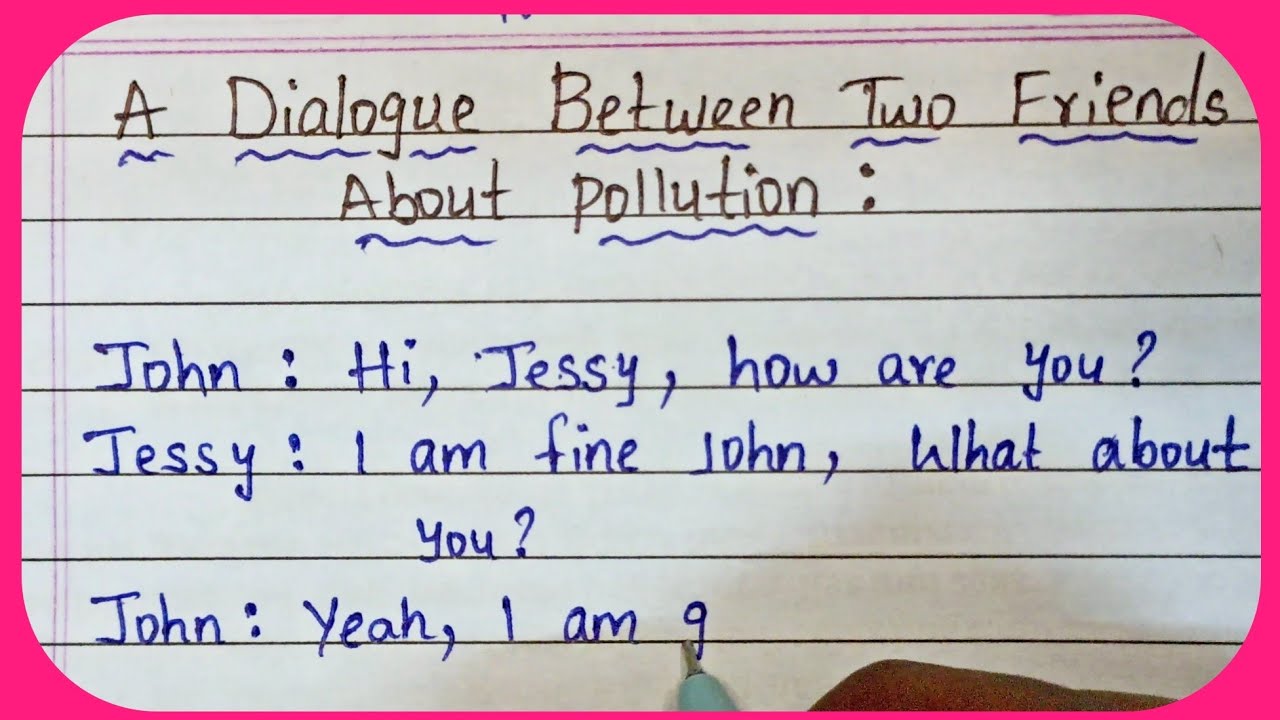 A Dialogue Between Two Friends
About pollution :
John : Hi, Jessy, how are you?
Jessy : I am fine John, What about
you?
John : Yeah, I am g